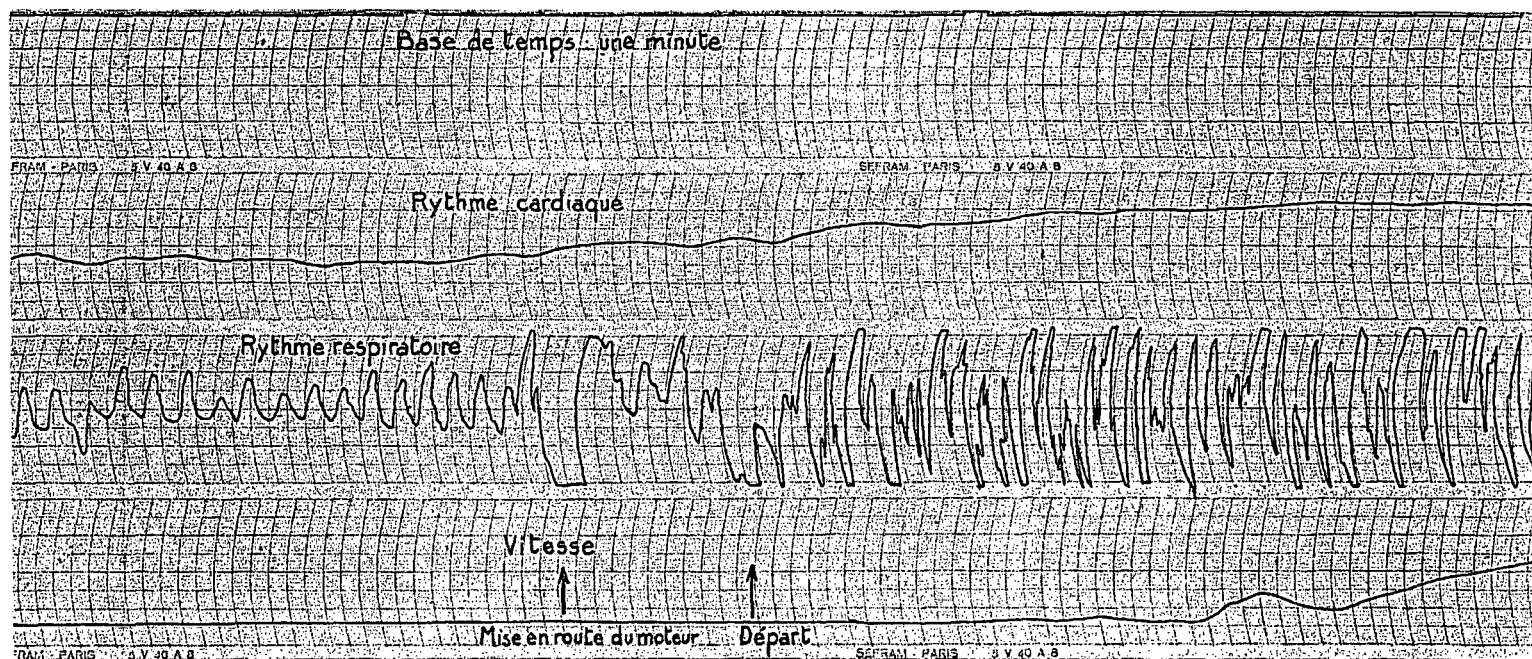 Base de temps : une minute
FRAM - PARIS 5 V 40 A 8
SEFRAM - PARIS 8 V 40 A 8
Rythme cardiaque
Rythme respiratoire
Vitesse
Mise en route du moteur
Départ
FRAM - PARIS 5 V 40 A 8
SEFRAM - PARIS 8 V 40 A 8